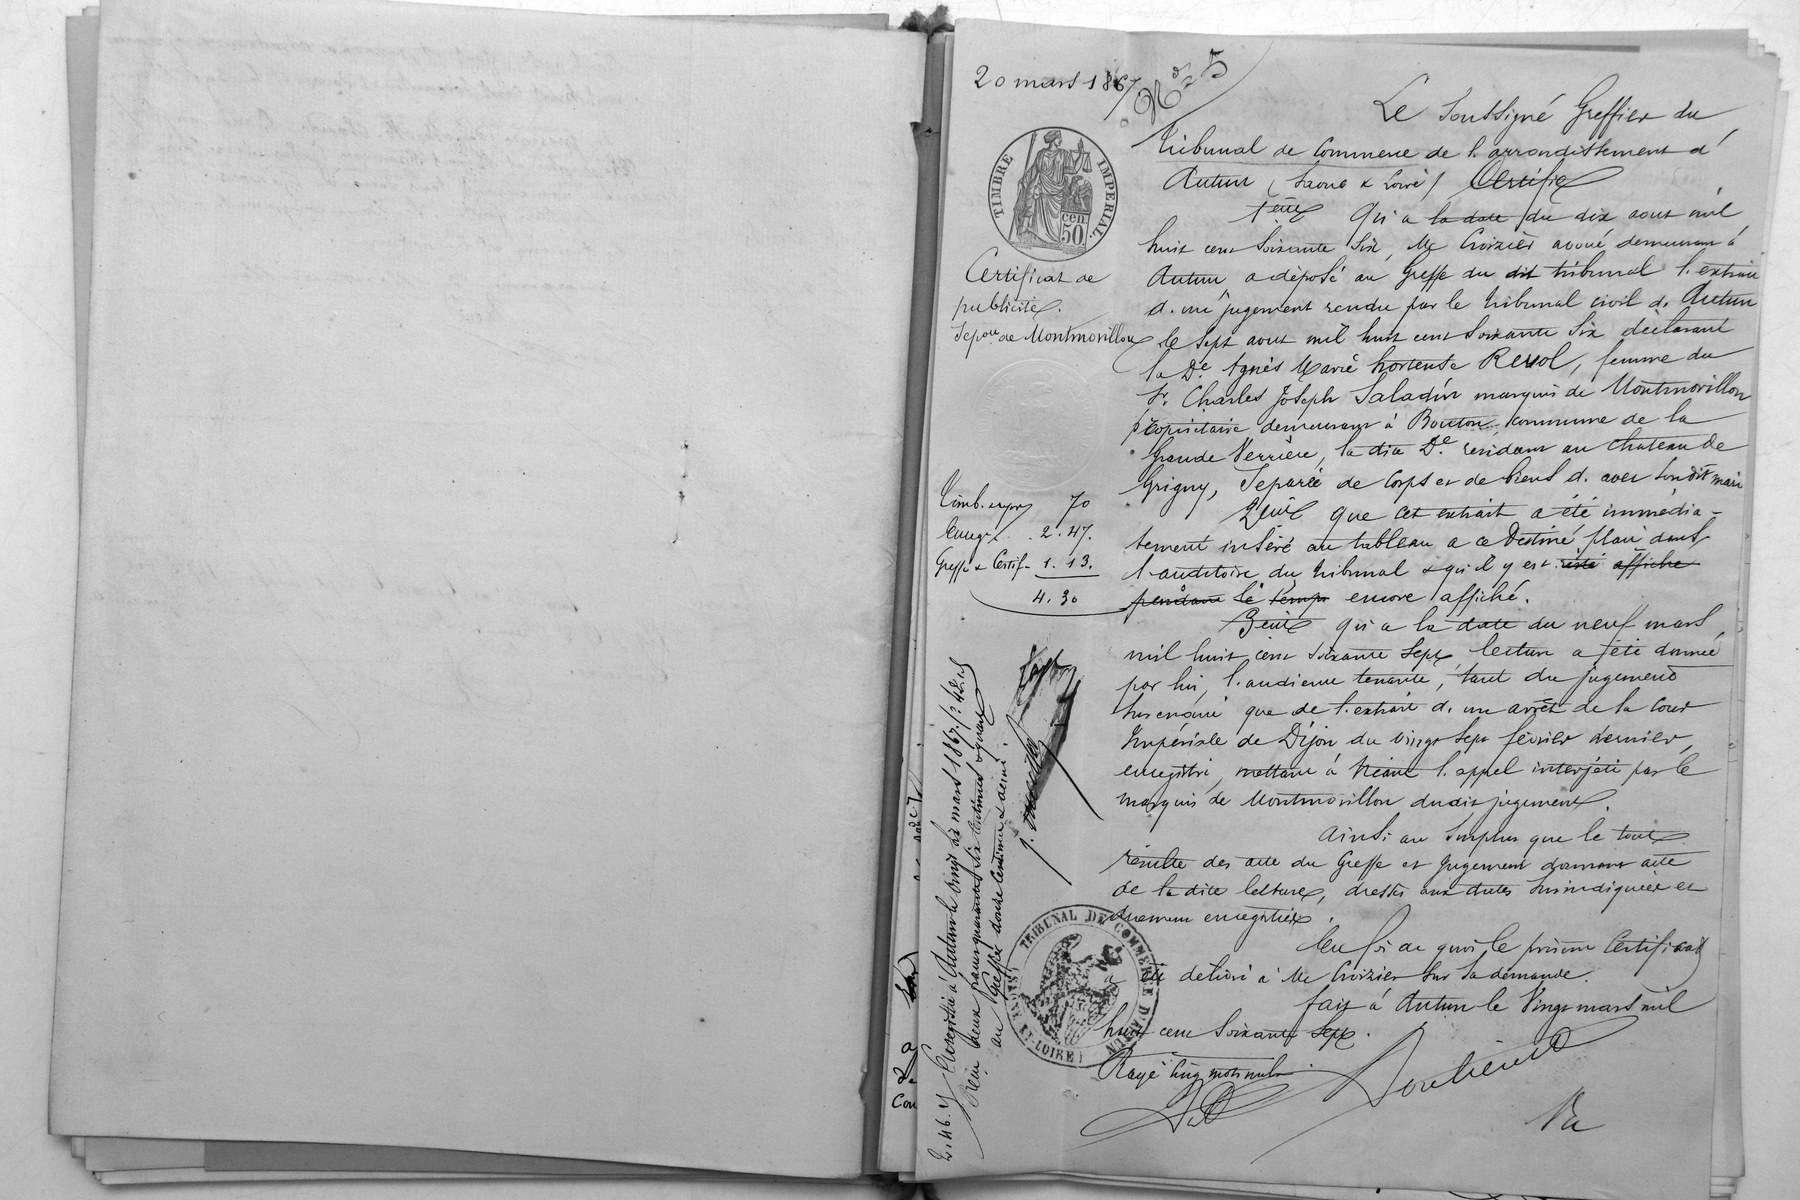 20 mars 1867
N° 5
TIMBRE IMPÉRIAL
50 cen
Certificat de
publicité.
Sepon de Montmorillon
Le Soussigné Greffier du
Tribunal de Commerce de l'arrondissement d'
Autun (Saone & Loire) Certifie
1ent Qu'a la date du dix aout mil
huit cent Soixante Six, Me Croizier avoué demeurant à
Autun, a déposé au Greffe du dit tribunal l'extrait
d'un jugement rendu par le tribunal civil d'Autun
le sept aout mil huit cent Soixante Six déclarant
la De Agnès Marie hortense Revol, femme du
Sr. Charles Joseph Saladin marquis de Montmorillon
propriétaire demeurant à Bouton, commune de la
Grande Verrière, la dite De résidant au chateau de
Grigny, Séparée de Corps et de biens d'avec son dit mari
2ent Que cet extrait a été immédia-
tement inséré au tableau a ce Destiné placé dans
l'auditoire du tribunal & qu'il y est resté affiché
pendant le temps encore affiché.
3ent Qu'a la date du neuf mars
mil huit cent soixante sept lecture a été donnée
par lui, l'audience tenante, tant du jugement
susénoncé que de l'extrait d'un arrêt de la Cour
Impériale de Dijon du vingt sept février dernier,
enregistré, mettant à Néant l'appel interjeté par le
marquis de Montmorillon dudit jugement.
Ainsi au surplus que le tout
résulte des acte du Greffe et jugement donnant acte
de la dite lecture, dressés aux dates susindiquées et
dûment enregistrés.
En foi de quoi le présent Certificat
a été délivré à Me Croizier sur sa demande.
fait à Autun le Vingt mars mil
huit cent Soixante Sept.
Rayé cinq mots nuls
Timb. 70
Enreg. 2.47.
Greffe & Certif. 1.13.
4.30
Enregistré à Autun le vingt six mars 1867
Reçu deux francs quarante six centimes
au Greffe douze centimes & demi.
2.46
TRIBUNAL DE COMMERCE D'AUTUN
ET-LOIRE)
Cou